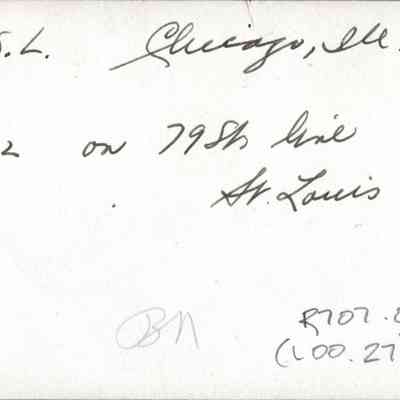 S.L. Chicago, Ill.
2 on 79th line
St. Louis
BN
R707.
(L00.27